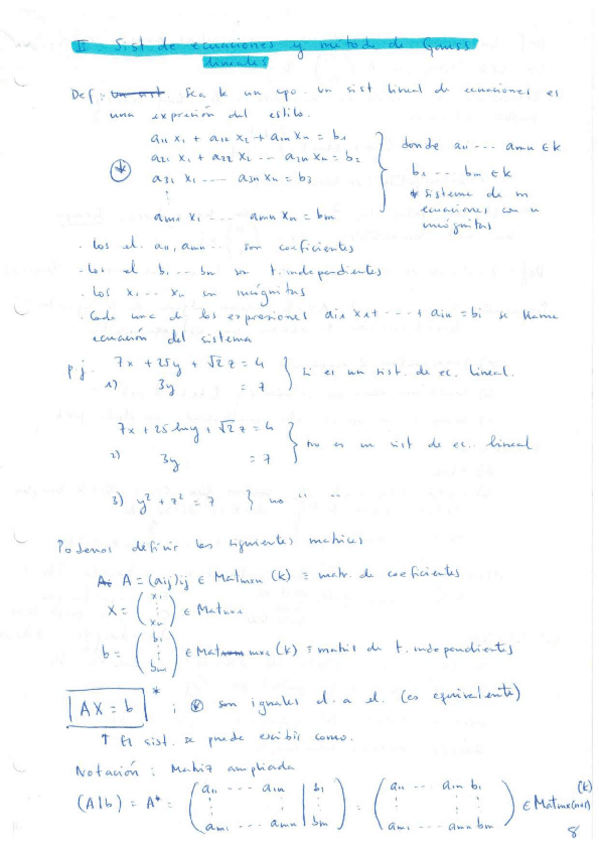 II Sist de ecuaciones y método de Gauss
lineales
Def: Un sist. Sea k un cpo. Un sist lineal de ecuaciones es
una expresión del estilo.
a11 x1 + a12 x2 + a1n xn = b1
a21 x1 + a22 x2 ... a2n xn = b2
a31 x1 ... a3n xn = b3
⋮
am1 x1 ... amn xn = bm
donde a11 ... amn ∈ k
b1 ... bm ∈ k
* sistema de m
ecuaciones con n
incógnitas
· Los el. a11, amn ... son coeficientes
· Los el b1 ... bm son t. independientes
· Los x1 ... xn son incógnitas
· Cada una de las expresiones ai1 x1 + ... + ain = bi se llama
ecuación del sistema
P.j. 7x + 25y + √2 z = 4
1) 3y = 7 } Sí es un sist. de ec. lineal.
7x + 25 ln y + √2 z = 4
2) 3y = 7 } no es un sist de ec. lineal
3) y² + z² = 7 } no " "
Podemos definir las siguientes matrices
A = (aij)ij ∈ Matmxn (k) ≡ matr. de coeficientes
X = (x1 ⋮ xn) ∈ Matnx1
b = (b1 ⋮ bm) ∈ Mat mx1 (k) ≡ matriz de t. independientes
AX = b * ; ⊛ son iguales el. a el. (es equivalente)
↑ El sist. se puede escribir como.
Notación: Matriz ampliada
(A|b) = A* = (a11 ... a1n | b1 ⋮ am1 ... amn | bm) = (a11 ... a1n b1 ⋮ am1 ... amn bm) ∈ Matmx(n+1) (k)
8